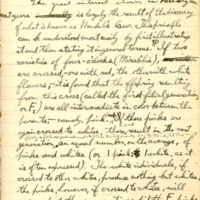 The great interest shown in heredity
is largely the result of the discovery
of what is known as Mendel's Law. This principle
can be understood most easily by first illustrating
it and then stating it in general terms. If two
varieties of four-o'clocks (Mirabilis)
are crossed, one with red, the other with white
flowers, it is found that the offspring resulting
from this cross (called the first filial generation
or F1) are all intermediate in color between the
parents - namely, pink. If these pinks are
again crossed to whites, there result in the next
generation, an equal number, on the average, of
pinks and whites (or 1 pink : 1 white, as it
is often expressed). The white individuals, if
crossed to other whites, produce nothing but whites,
the pinks, however, if crossed to whites, will